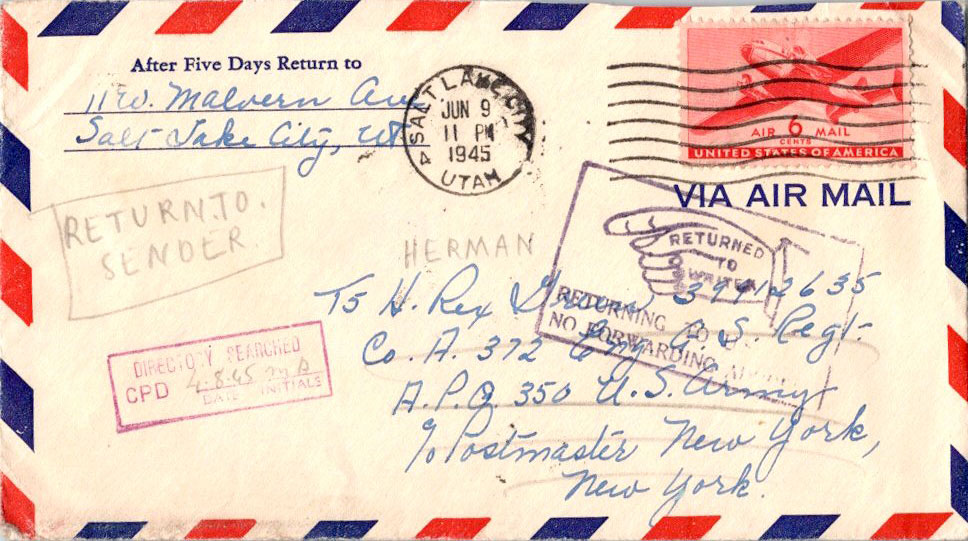 After Five Days Return to
11 W. Malvern Av
Salt Lake City, Ut
SALT LAKE CITY
JUN 9
11 PM
1945
4
UTAH
AIR 6 MAIL
CENTS
UNITED STATES OF AMERICA
VIA AIR MAIL
RETURN.TO.
SENDER
HERMAN
RETURNED
TO
WRITER
RETURNING TO
NO FORWARDING
T5 H. Rex 39912635
Co. A. 372 Eng. G. S. Regt.
A.P.O 350 U.S. Army
c/o Postmaster New York,
New York.
DIRECTORY SEARCHED
CPD
DATE INITIALS